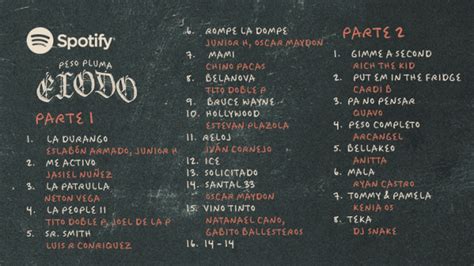 Spotify
PESO PLUMA
ÉXODO
PARTE 1
1. LA DURANGO
ESLABÓN ARMADO, JUNIOR H
2. ME ACTIVO
JASIEL NUÑEZ
3. LA PATRULLA
NETON VEGA
4. LA PEOPLE II
TITO DOBLE P, JOEL DE LA P
5. SR. SMITH
LUIS R CONRIQUEZ
6. ROMPE LA DOMPE
JUNIOR H, OSCAR MAYDON
7. MAMI
CHINO PACAS
8. BELANOVA
TITO DOBLE P
9. BRUCE WAYNE
10. HOLLYWOOD
ESTEVAN PLAZOLA
11. RELOJ
IVÁN CORNEJO
12. ICE
13. SOLICITADO
14. SANTAL 33
OSCAR MAYDON
15. VINO TINTO
NATANAEL CANO,
GABITO BALLESTEROS
16. 14-14
PARTE 2
1. GIMME A SECOND
RICH THE KID
2. PUT EM IN THE FRIDGE
CARDI B
3. PA NO PENSAR
QUAVO
4. PESO COMPLETO
ARCANGEL
5. BELLAKEO
ANITTA
6. MALA
RYAN CASTRO
7. TOMMY & PAMELA
KENIA OS
8. TEKA
DJ SNAKE